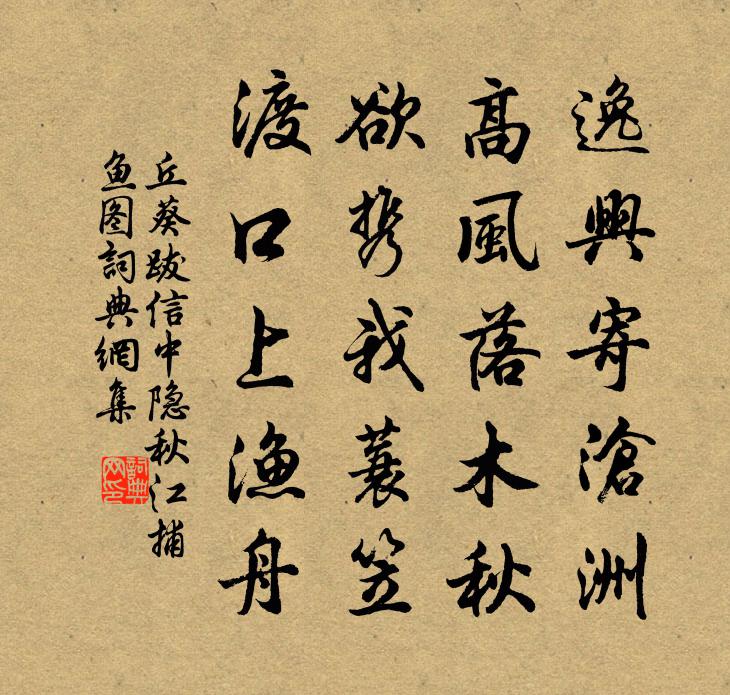 逸興寄滄洲
高風落木秋
欲携我蓑笠
渡口上漁舟
丘葵跋信中隐秋江捕
鱼图詞典網集
詞典
网印